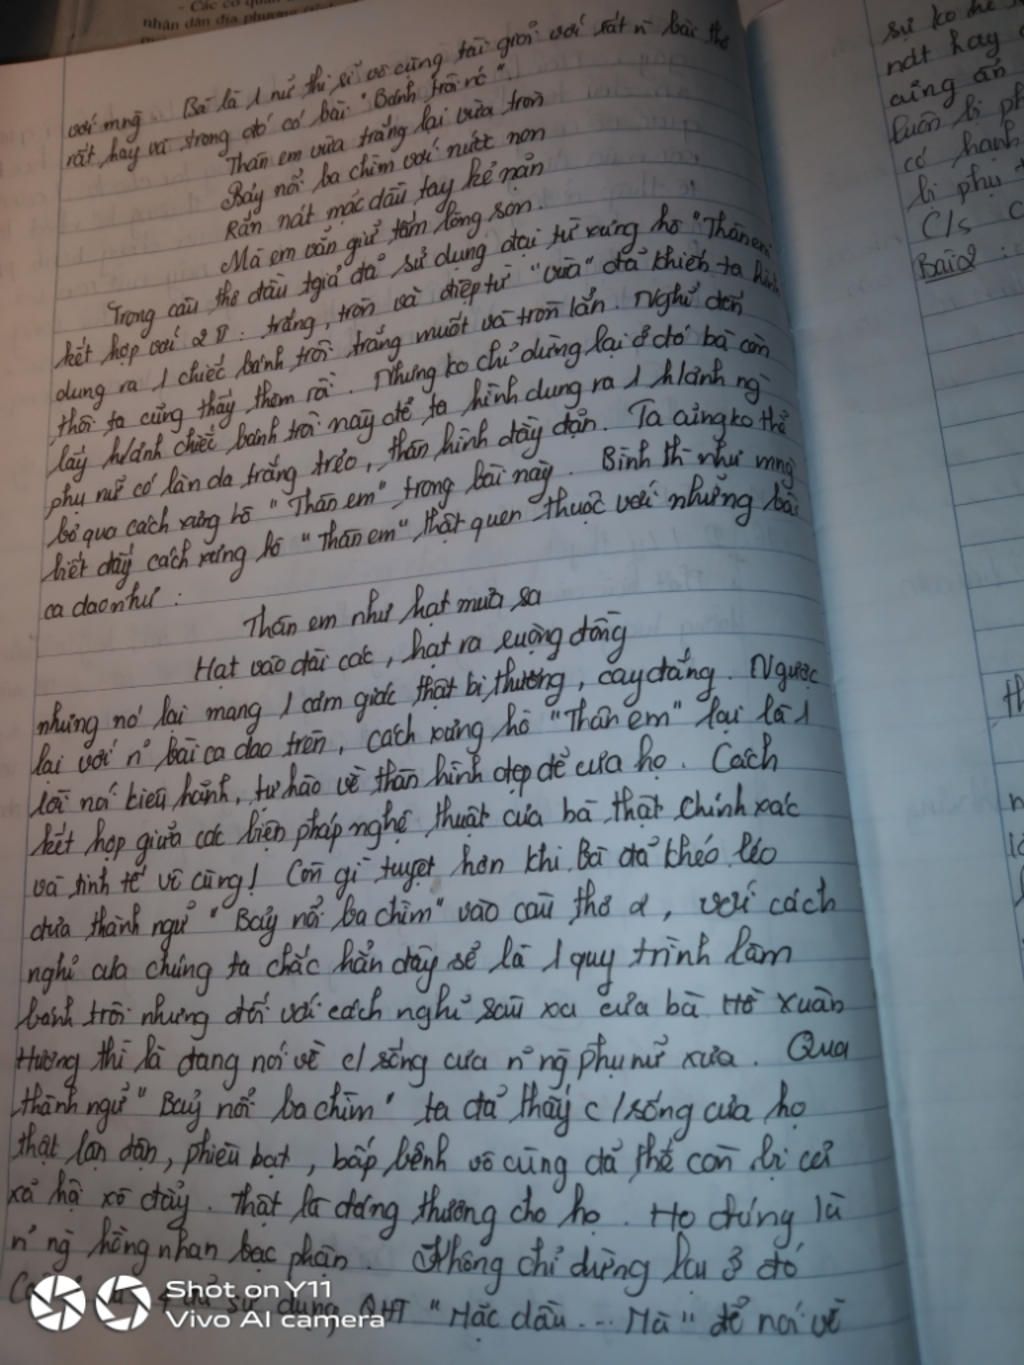 - Các cơ quan
nhân dân địa phương
với mng Bà là 1 nữ thi sĩ vô cùng tài giỏi với rất n` bài thơ
rất hay và trong đó có bài "Bánh trôi nc".
Thân em vừa trắng lại vừa tròn
Bảy nổi ba chìm với nước non
Rắn nát mặc dầu tay kẻ nặn
Mà em vẫn giữ tấm lòng son.
Trong câu thơ đầu tgiả đã sử dụng đại từ xưng hô "Thân em"
kết hợp với 2 : trắng, tròn và điệp từ "vừa" đã khiến ta hình
dung ra 1 chiếc bánh trôi trắng muốt và tròn lẳn. Nghĩ đến
thôi ta cũng thấy thèm rồi. Nhưng ko chỉ dừng lại ở đó bà còn
lấy h/ảnh chiếc bánh trôi này để ta hình dung ra 1 h/ảnh ng`
phụ nữ có làn da trắng trẻo, thân hình đầy đặn. Ta cũng ko thể
bỏ qua cách xưng hô "Thân em" trong bài này. Bình thì như mng
biết đấy cách xưng hô "Thân em" thật quen thuộc với những bài
ca dao như :
Thân em như hạt mưa sa
Hạt vào đài các, hạt ra ruộng đồng
nhưng nó lại mang 1 cảm giác thật bi thương, cay đắng. Ngược
lại với n~ bài ca dao trên, cách xưng hô "Thân em" lại là 1
lời nói kiêu hãnh, tự hào về thân hình đẹp đẽ của họ. Cách
kết hợp giữa các biện pháp nghệ thuật của bà thật chính xác
và tinh tế vô cùng! Còn gì tuyệt hơn khi Bà đã khéo léo
đưa thành ngữ "Bảy nổi ba chìm" vào câu thơ 2, với cách
nghĩ của chúng ta chắc hẳn đây sẽ là 1 quy trình làm
bánh trôi nhưng đối với cách nghĩ sâu xa của bà Hồ Xuân
Hương thì là đang nói về c/sống của n~ ng phụ nữ xưa. Qua
thành ngữ "Bảy nổi ba chìm" ta đã thấy c/sống của họ
thật lận đận, phiêu bạt, bấp bênh vô cùng đã thế còn bị cả
xã hội xô đẩy. Thật là đáng thương cho họ. Họ đúng là
n~ ng hồng nhan bạc phận. Không chỉ dừng lại ở đó
sử dụng QHT "Mặc dầu... Mà" để nói về
sự ko
nát hay
cũng ấn
luôn bị ph
có hạnh
bị phụ t
C/s
Bài 2 :
Shot on Y11
Vivo AI camera